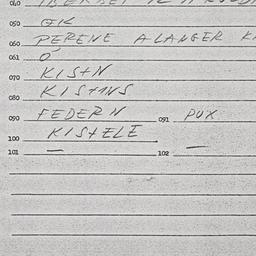 040
050 GK
060 PERENE A LANGER K
061 O
070 KISTN
080 KISTINS
090 FEDERN 091 PUX
100 KISTELE
101 — 102 —